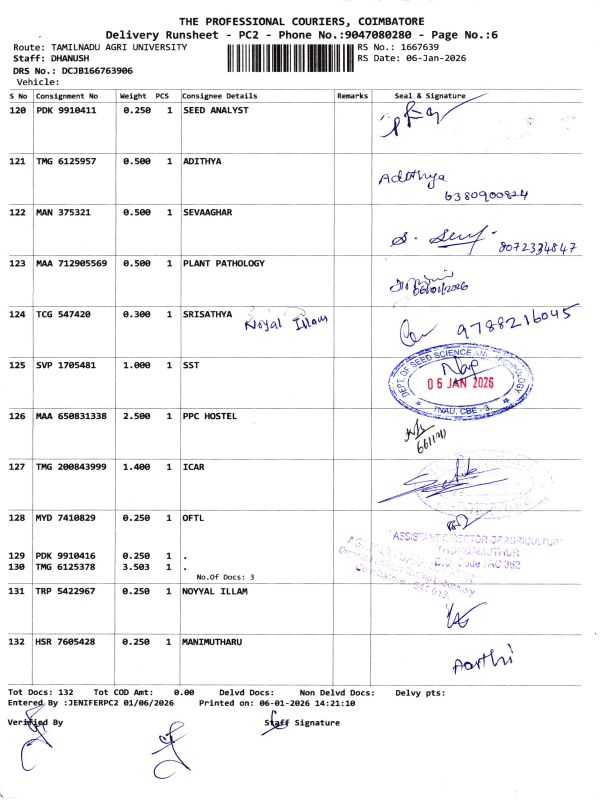 THE PROFESSIONAL COURIERS, COIMBATORE
Delivery Runsheet - PC2 - Phone No.:9047080280 - Page No.:6
Route: TAMILNADU AGRI UNIVERSITY RS No.: 1667639
Staff: DHANUSH RS Date: 06-Jan-2026
DRS No.: DCJB166763906
Vehicle:
S No Consignment No Weight PCS Consignee Details Remarks Seal & Signature
120 PDK 9910411 0.250 1 SEED ANALYST
121 TMG 6125957 0.500 1 ADITHYA
Adithya
6380900824
122 MAN 375321 0.500 1 SEVAAGHAR
8072334847
123 MAA 712905569 0.500 1 PLANT PATHOLOGY
06/01/2026
124 TCG 547420 0.300 1 SRISATHYA
Noyal Illam
9788216045
125 SVP 1705481 1.000 1 SST
DEPT. OF SEED SCIENCE AND TECHNOLOGY
06 JAN 2026
TNAU, CBE - 3
126 MAA 650831338 2.500 1 PPC HOSTEL
127 TMG 200843999 1.400 1 ICAR
128 MYD 7410829 0.250 1 OFTL
ASSISTANT DIRECTOR OF AGRICULTURE
129 PDK 9910416 0.250 1 .
130 TMG 6125378 3.503 1 .
No.Of Docs: 3
131 TRP 5422967 0.250 1 NOYYAL ILLAM
132 HSR 7605428 0.250 1 MANIMUTHARU
Aarthi
Tot Docs: 132 Tot COD Amt: 0.00 Delvd Docs: Non Delvd Docs: Delvy pts:
Entered By :JENIFERPC2 01/06/2026 Printed on: 06-01-2026 14:21:10
Verified By Staff Signature